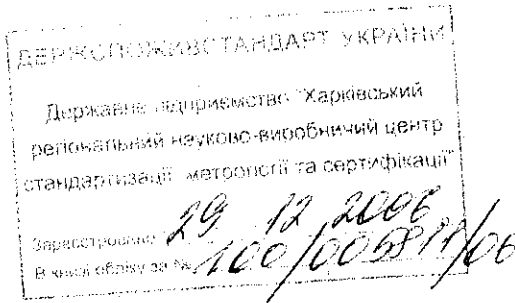 ДЕРЖСПОЖИВСТАНДАРТ УКРАЇНИ
Державне підприємство "Харківський
регіональний науково-виробничий центр
стандартизації, метрології та сертифікації"
Зареєстровано 29 12 2006
В книзі обліку за № 100/